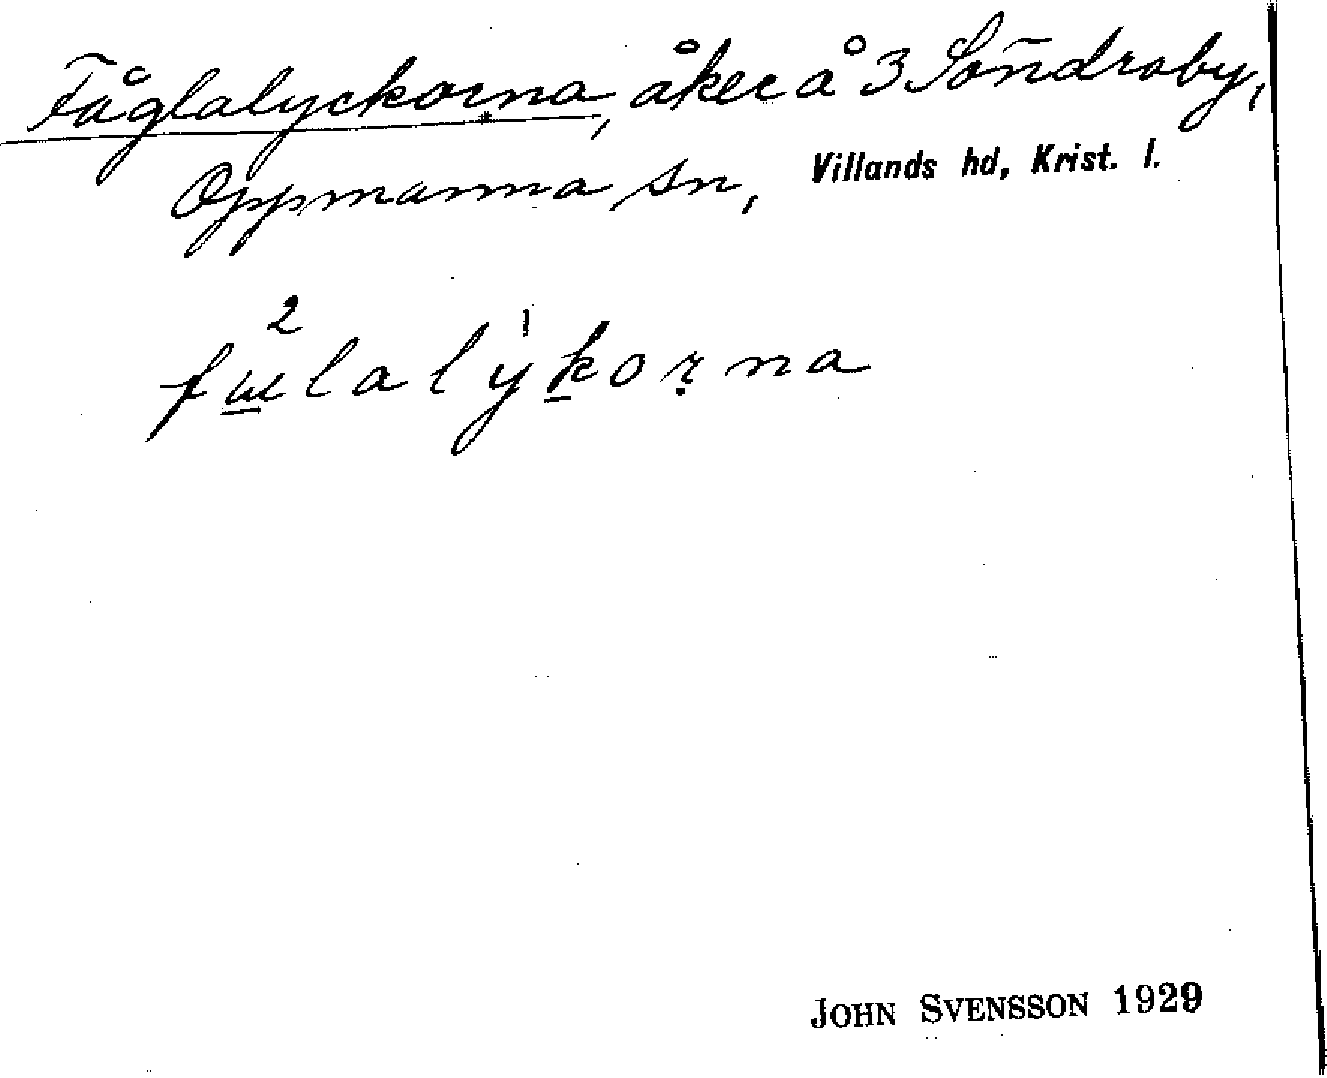 Fåglalyckorna, åker å 3 Söndraby,
Oppmanna sn, Villands hd, Krist. l.
2 1
fɯlalykorna
JOHN SVENSSON 1929